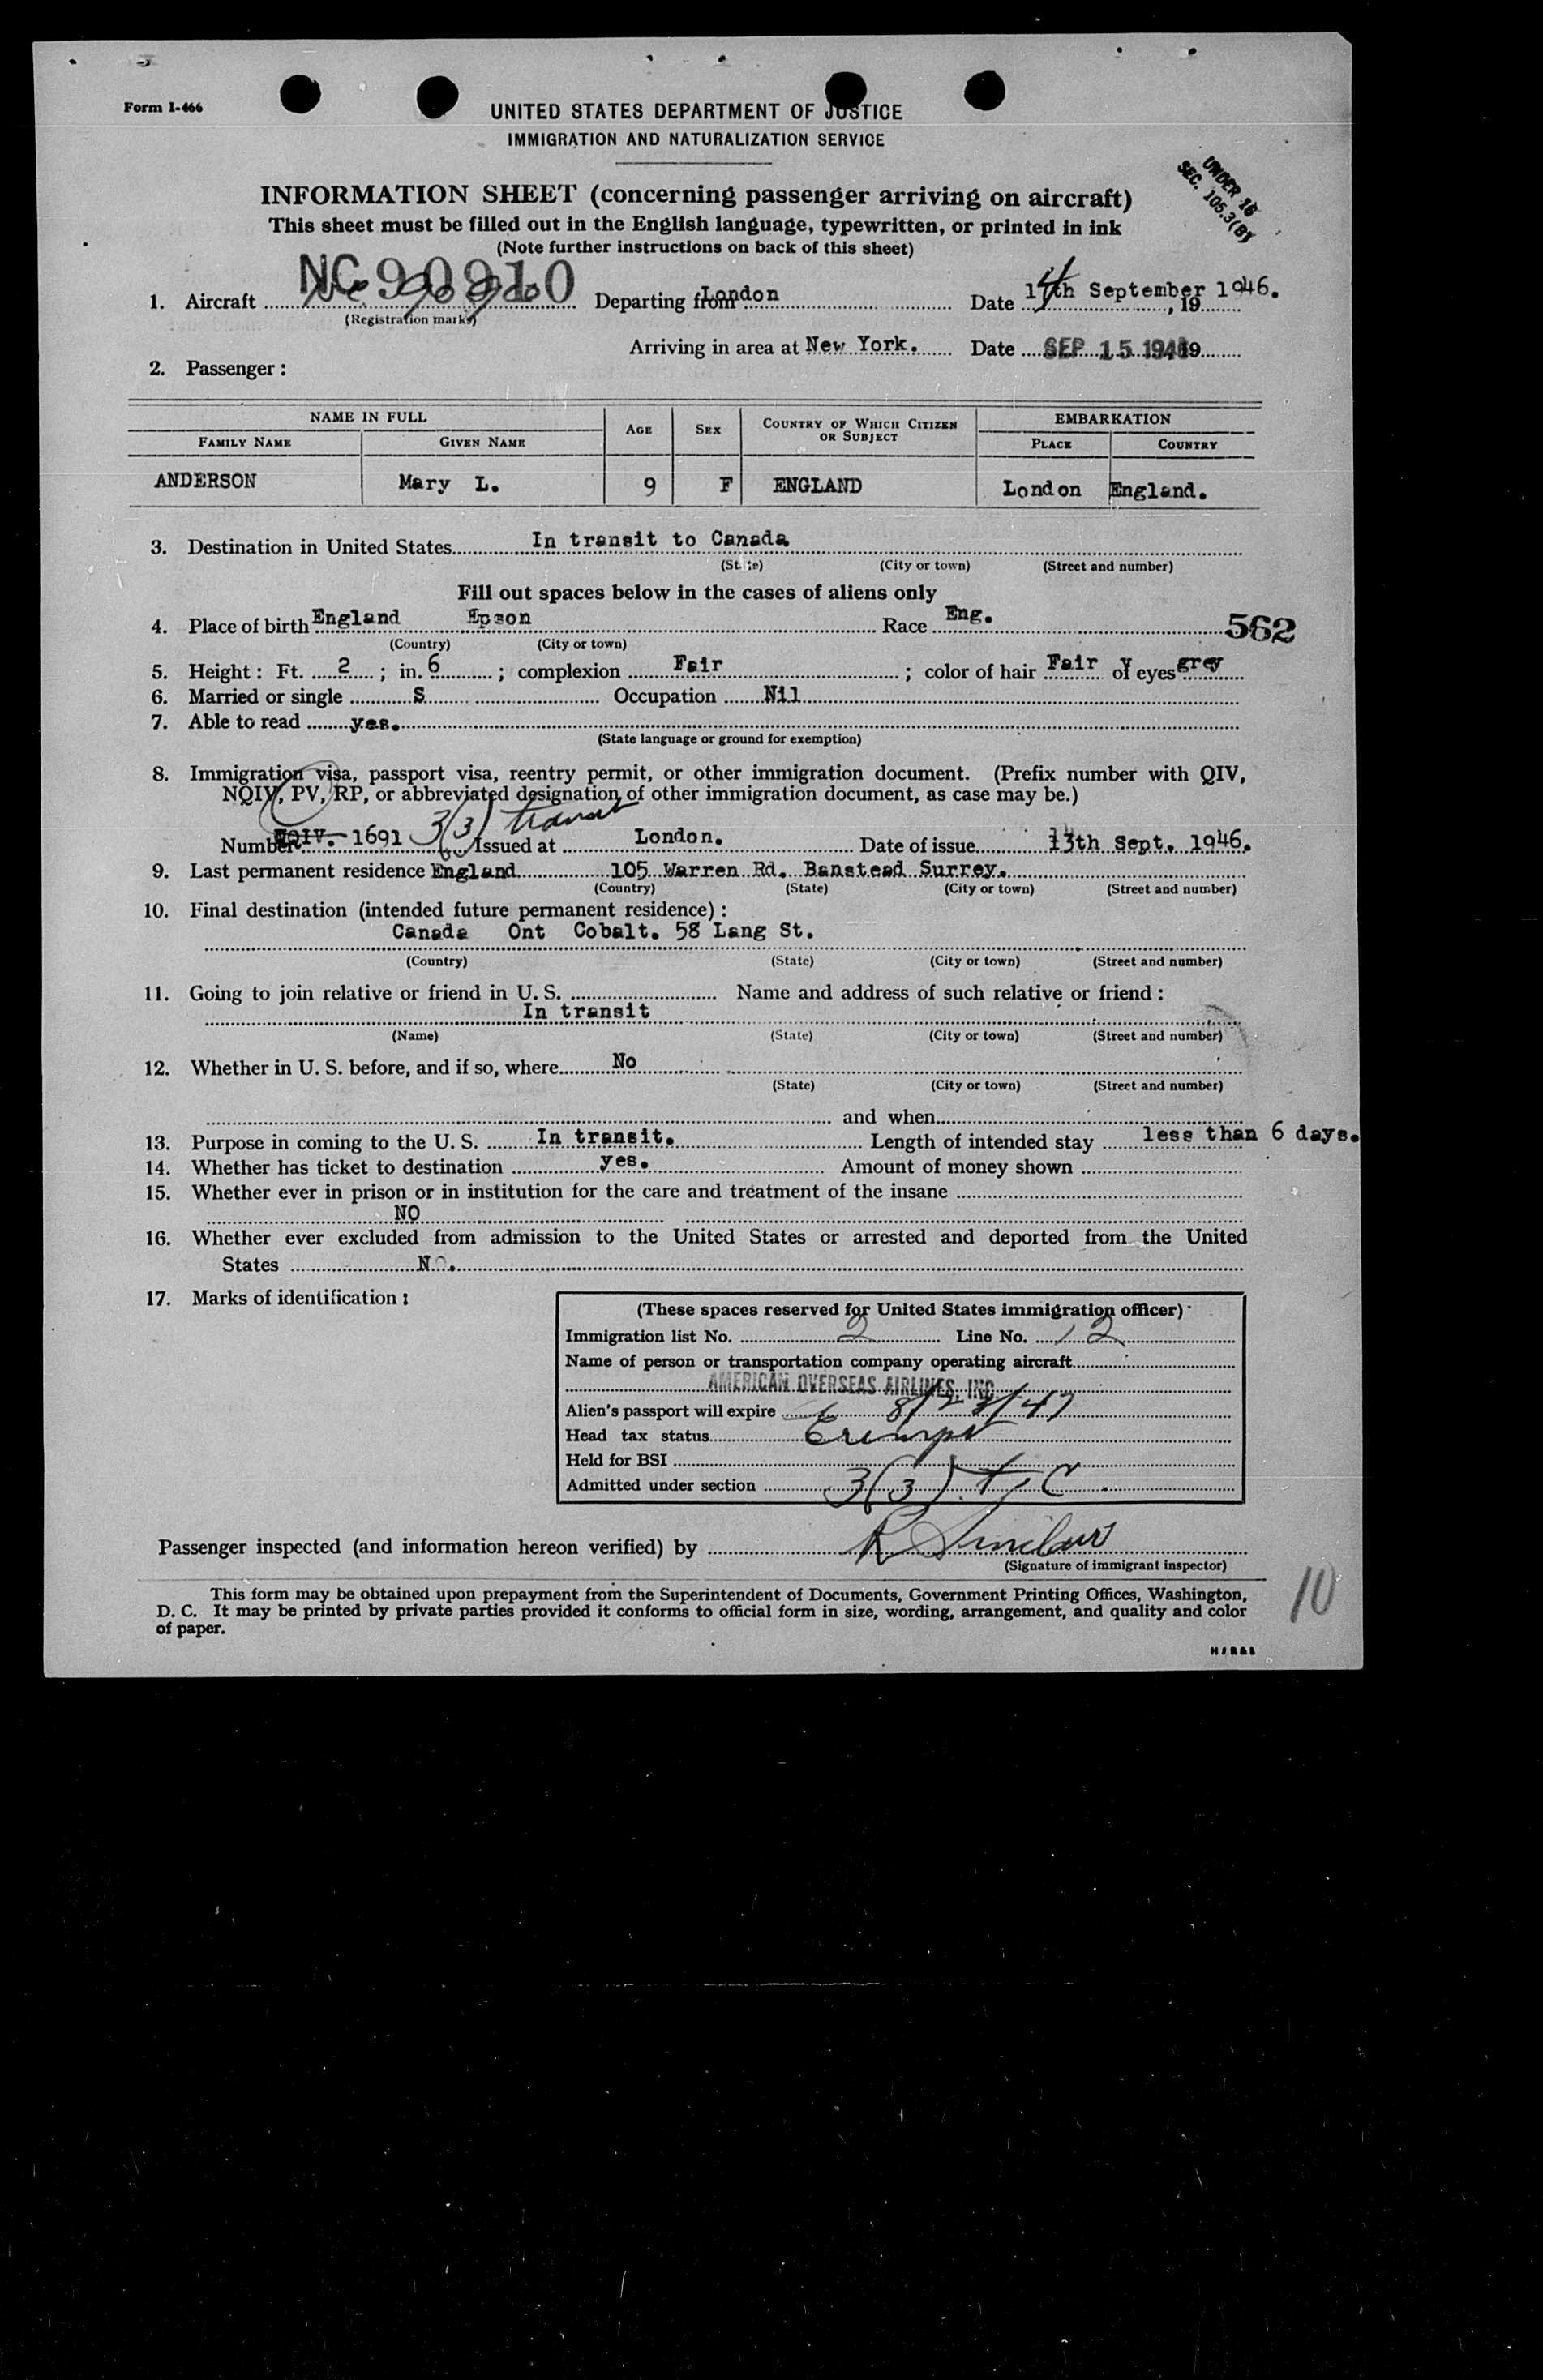 Form I-466
UNITED STATES DEPARTMENT OF JUSTICE
IMMIGRATION AND NATURALIZATION SERVICE
UNDER 16
SEC. 105.3(B)
INFORMATION SHEET (concerning passenger arriving on aircraft)
This sheet must be filled out in the English language, typewritten, or printed in ink
(Note further instructions on back of this sheet)
1. Aircraft NC 90910 Departing from London Date 14th September 1946. , 19
(Registration marks)
Arriving in area at New York. Date SEP 15 1946 19
2. Passenger:
NAME IN FULL AGE SEX COUNTRY OF WHICH CITIZEN OR SUBJECT EMBARKATION
FAMILY NAME GIVEN NAME PLACE COUNTRY
ANDERSON Mary L. 9 F ENGLAND London England.
3. Destination in United States In transit to Canada
(State) (City or town) (Street and number)
Fill out spaces below in the cases of aliens only
4. Place of birth England Epson Race Eng. 562
(Country) (City or town)
5. Height: Ft. 2 ; in. 6 ; complexion Fair ; color of hair Fair of eyes grey
6. Married or single S Occupation Nil
7. Able to read yes.
(State language or ground for exemption)
8. Immigration visa, passport visa, reentry permit, or other immigration document. (Prefix number with QIV,
NQIV, PV, RP, or abbreviated designation of other immigration document, as case may be.)
3(3) transit
Number NQIV. 1691 Issued at London. Date of issue 13th Sept. 1946.
9. Last permanent residence England 105 Warren Rd. Banstead Surrey.
(Country) (State) (City or town) (Street and number)
10. Final destination (intended future permanent residence):
Canada Ont Cobalt. 58 Lang St.
(Country) (State) (City or town) (Street and number)
11. Going to join relative or friend in U. S. Name and address of such relative or friend:
In transit
(Name) (State) (City or town) (Street and number)
12. Whether in U. S. before, and if so, where No
(State) (City or town) (Street and number)
and when
13. Purpose in coming to the U. S. In transit. Length of intended stay less than 6 days.
14. Whether has ticket to destination yes. Amount of money shown
15. Whether ever in prison or in institution for the care and treatment of the insane
NO
16. Whether ever excluded from admission to the United States or arrested and deported from the United
States No.
17. Marks of identification:
(These spaces reserved for United States immigration officer)
Immigration list No. 2 Line No. 12
Name of person or transportation company operating aircraft
AMERICAN OVERSEAS AIRLINES, INC.
Alien's passport will expire 8/23/47
Head tax status Exempt
Held for BSI
Admitted under section 3(3)
Passenger inspected (and information hereon verified) by
(Signature of immigrant inspector)
This form may be obtained upon prepayment from the Superintendent of Documents, Government Printing Offices, Washington,
D. C. It may be printed by private parties provided it conforms to official form in size, wording, arrangement, and quality and color
of paper.
10